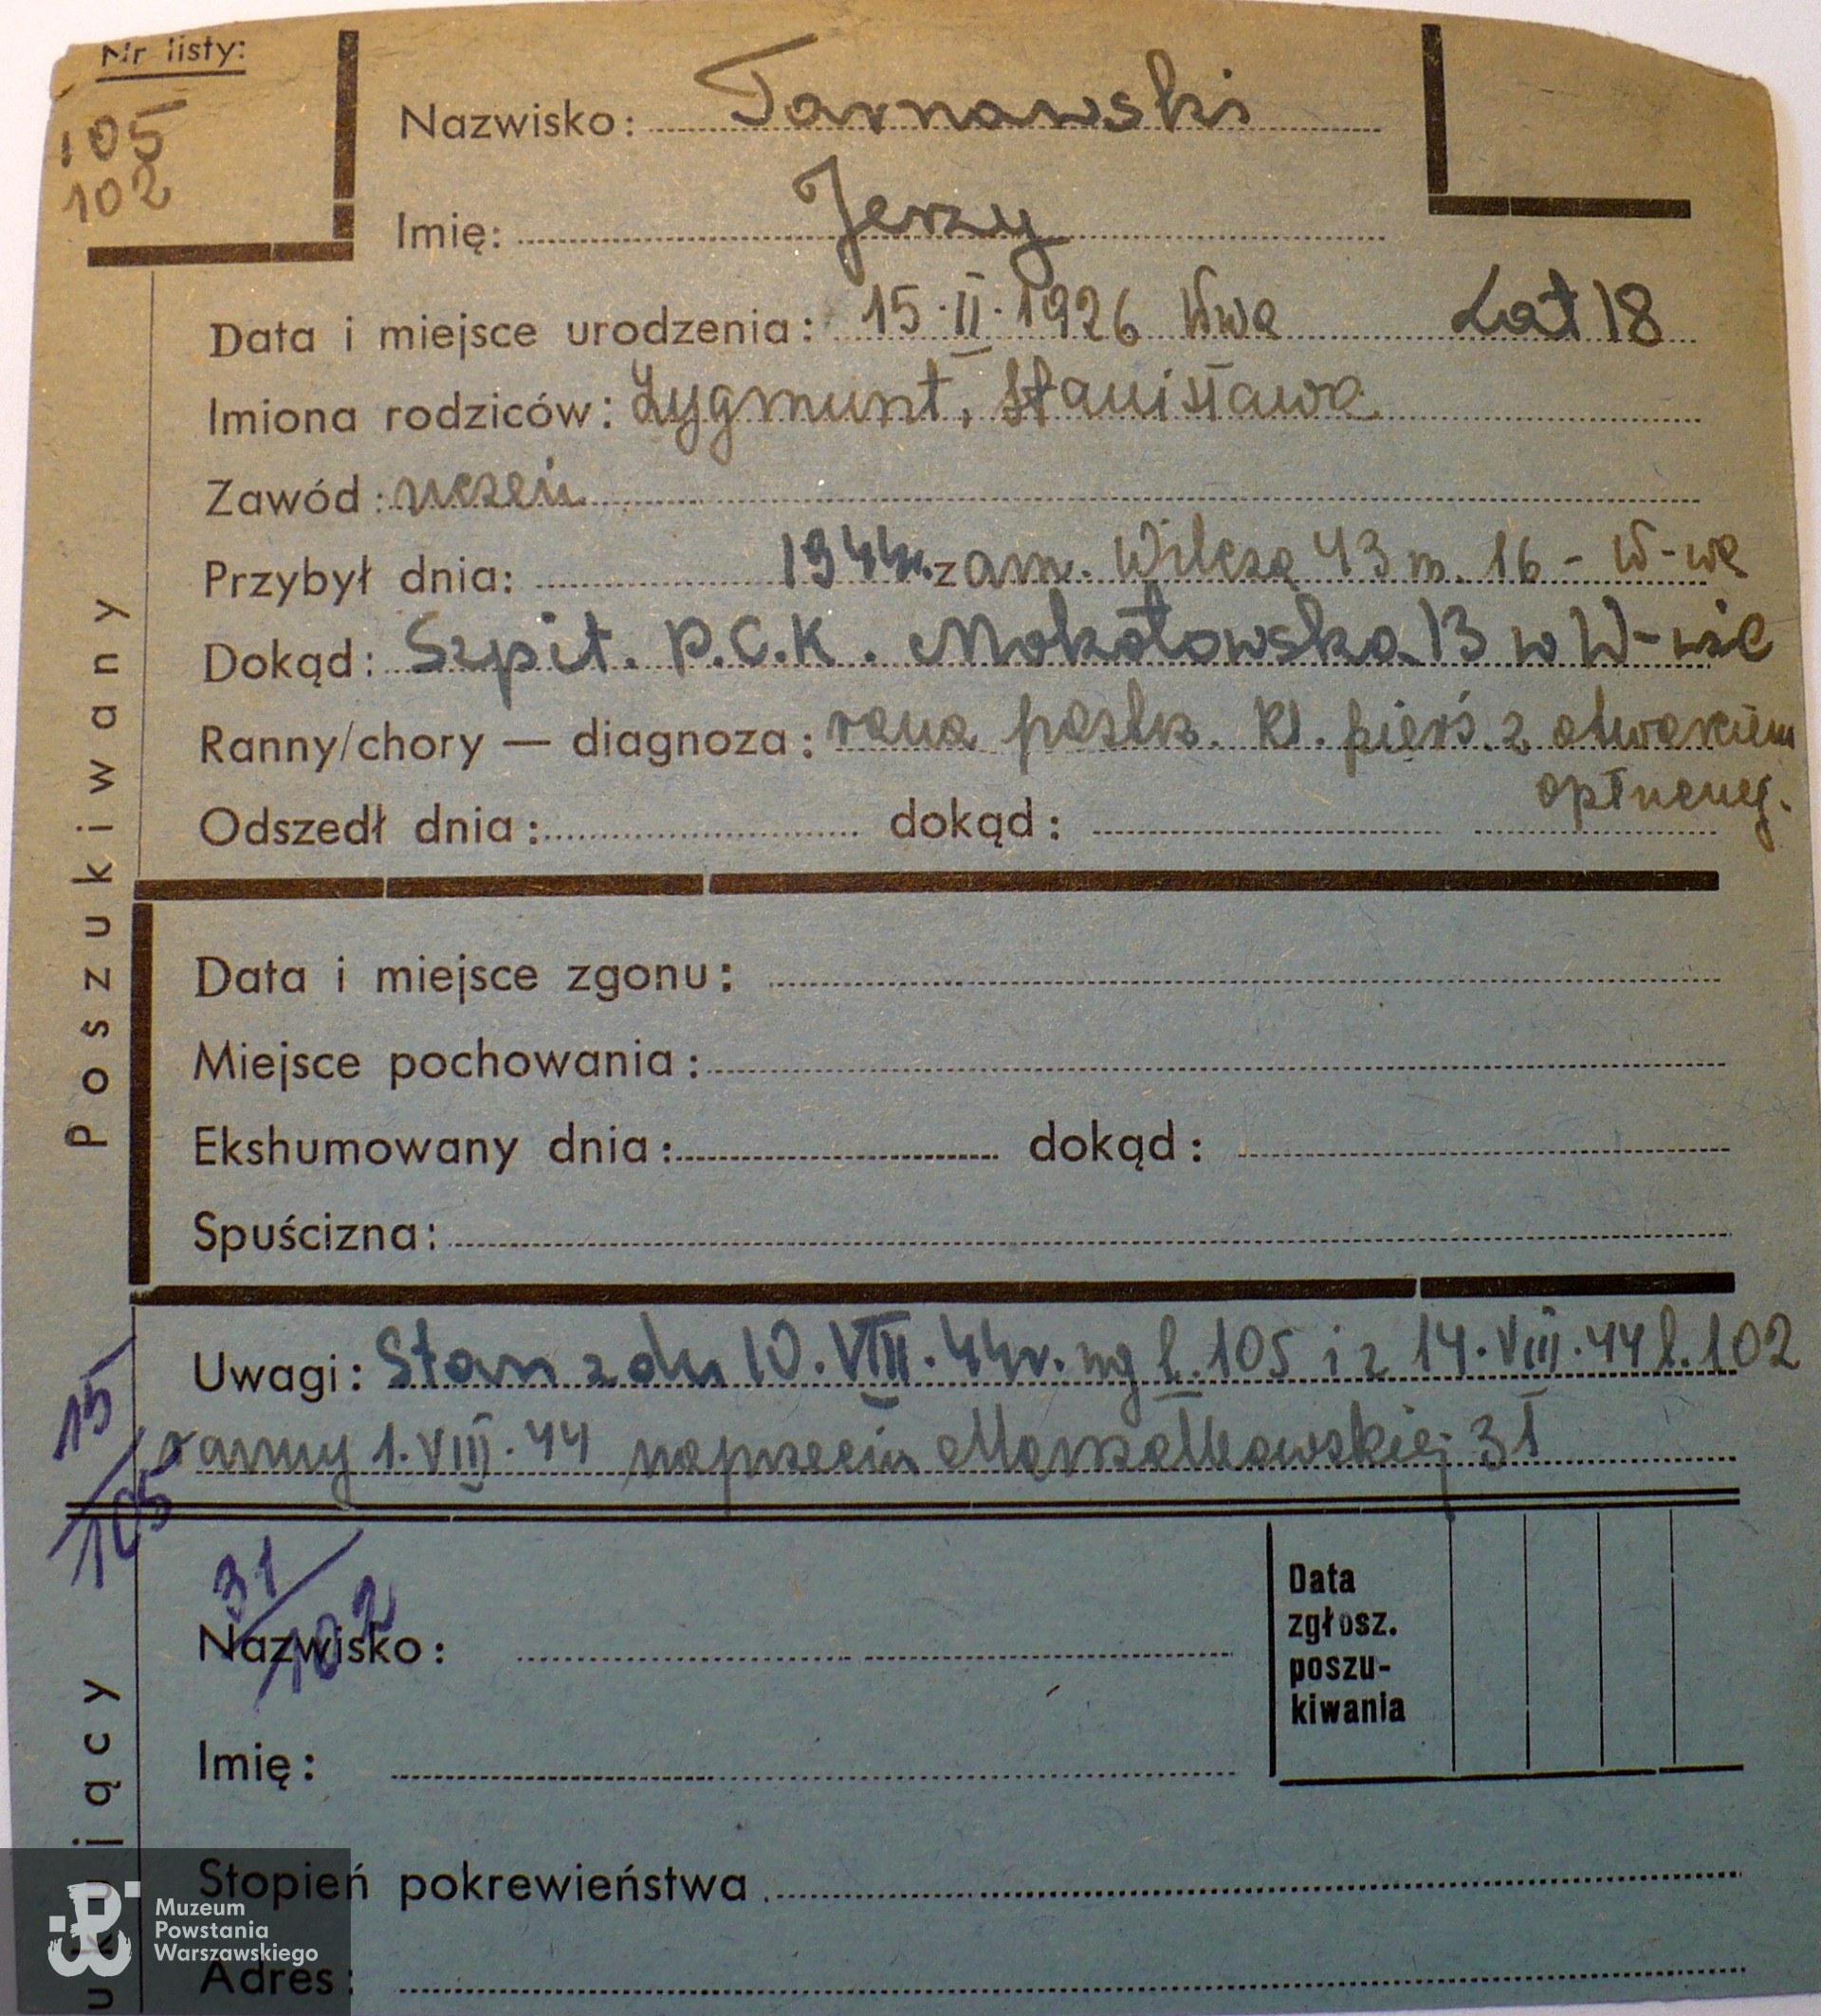 Nr listy:
105
102
Nazwisko: Tarnawski
Imię: Jerzy
Data i miejsce urodzenia: 15.II.1926 Wwa Lat 18
Imiona rodziców: Zygmunt, Stanisława
Zawód: uczeń
Przybył dnia: 1944r. zam. Wilcza 43 m. 16 - W-wa
Dokąd: Szpit. P.C.K. Mokotowska 13 w W-wie
Ranny/chory — diagnoza: rana postrz. kl. pierś. z otwarciem
opłucnej.
Odszedł dnia: dokąd:
Data i miejsce zgonu:
Miejsce pochowania:
Ekshumowany dnia: dokąd:
Spuścizna:
Poszukiwany
Uwagi: Stan z dn 10.VIII.44r. wg l. 105 i z 14.VIII.44 l. 102
ranny 1.VIII.44 naprzeciw Marszałkowskiej 31
15/105
31/102
Nazwisko:
Imię:
Data
zgłosz.
poszu-
kiwania
Stopień pokrewieństwa
Adres:
ukujący
Muzeum
Powstania
Warszawskiego